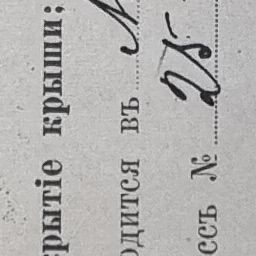 крытіе крыши;
одится въ
ссъ № 25